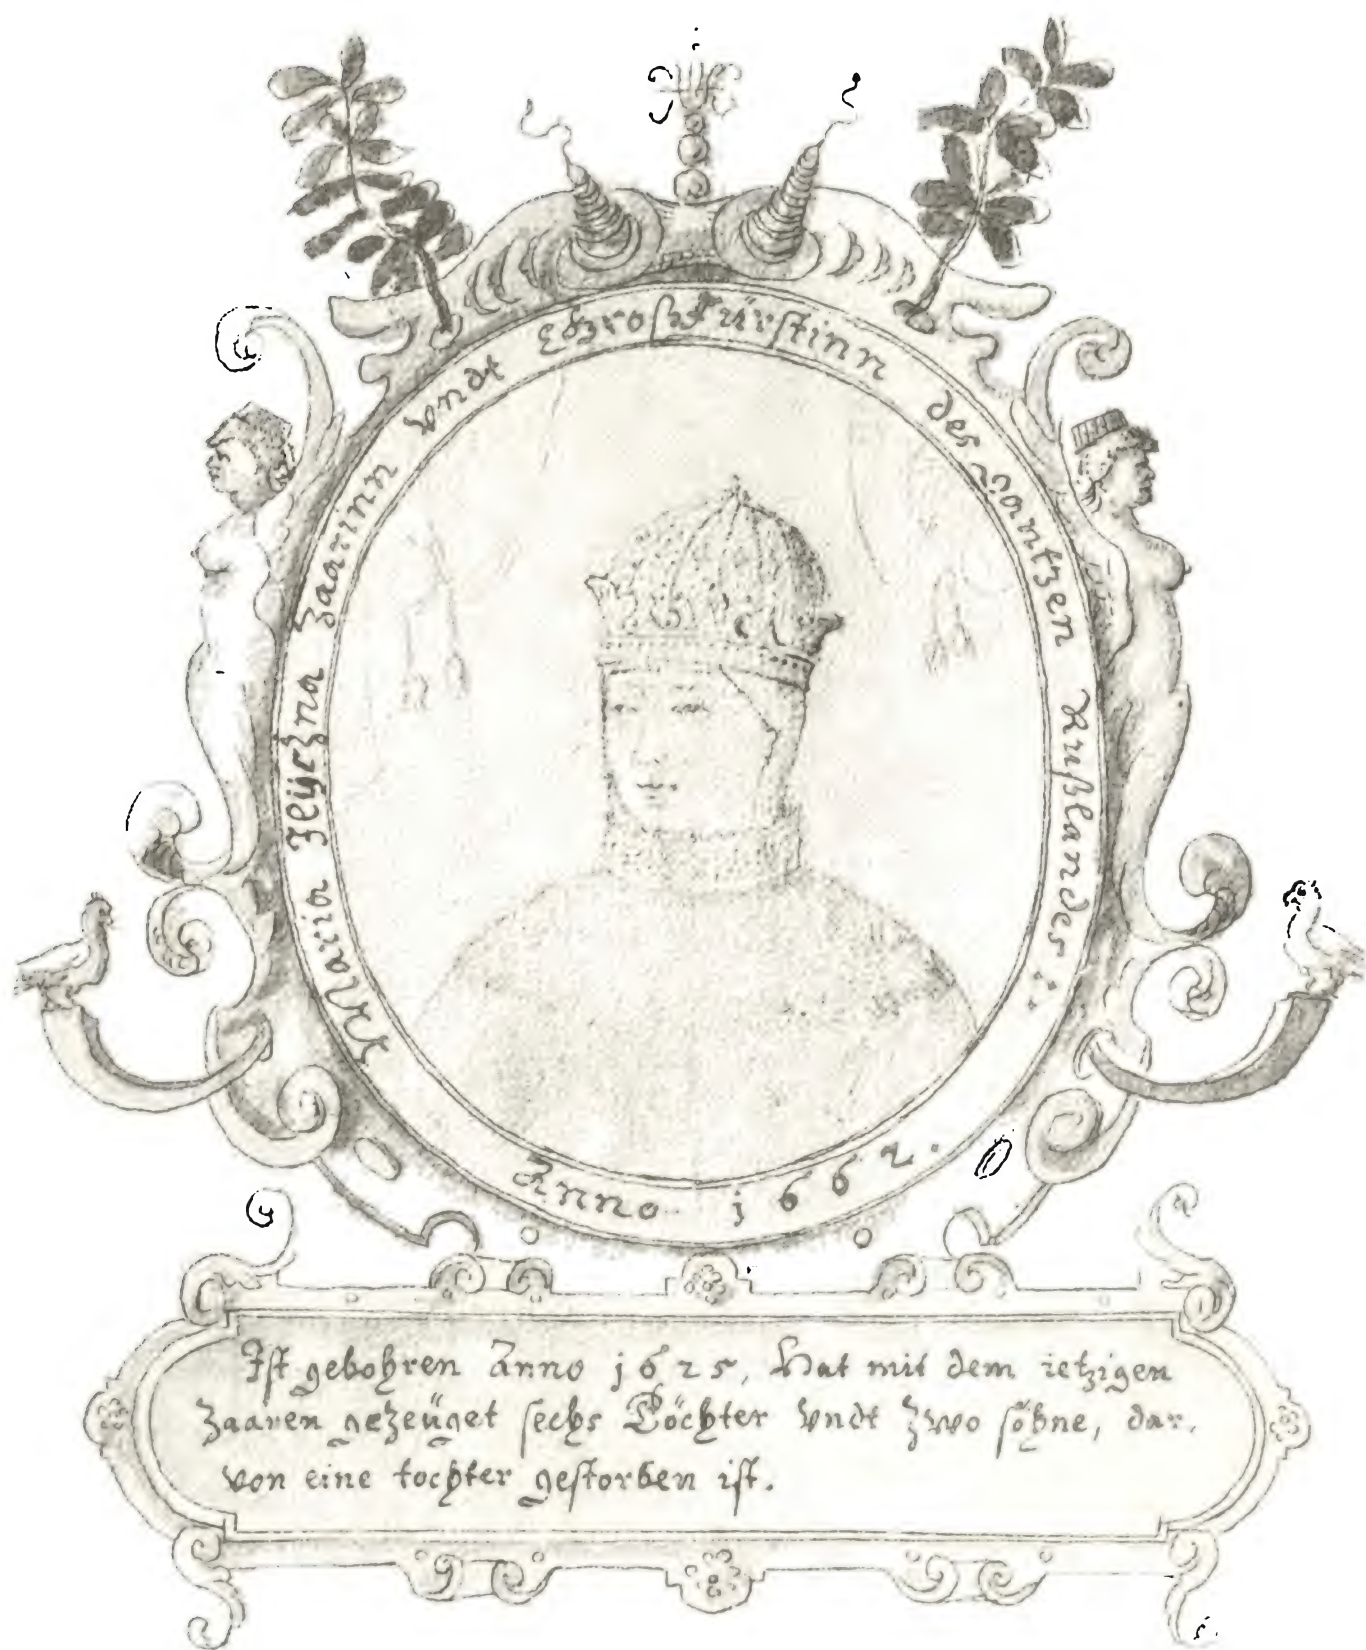 Maria Ilijczna Zaarinn vndt GroßFürstinn des Gantzen Rußlandes:.
Anno 1662.
Ist gebohren Anno 1625, Hat mit dem ietzigen
Zaaren gezeüget sechs Töchter vndt zwo söhne, dar,
von eine tochter gestorben ist.